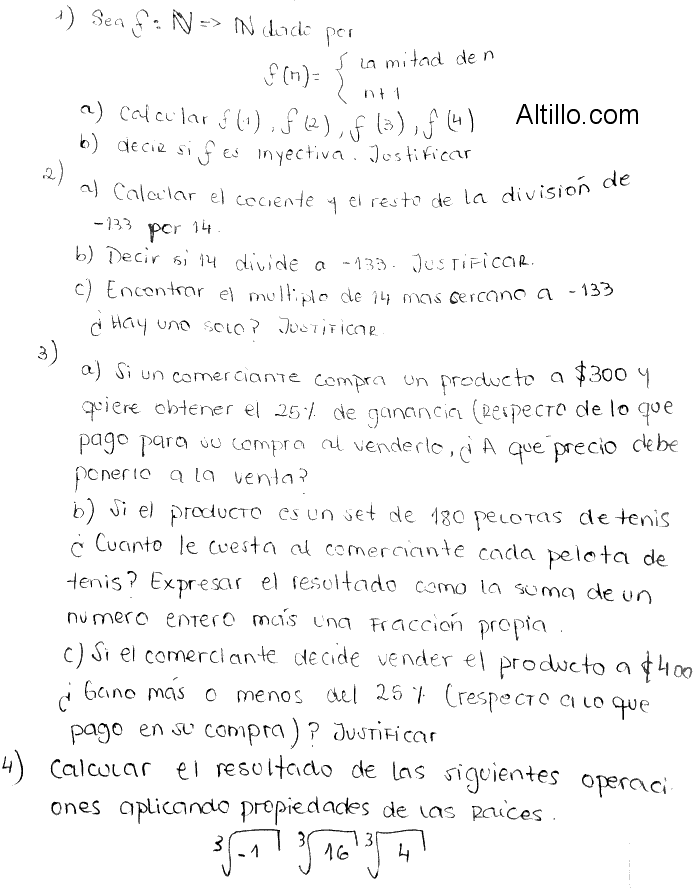 1) Sea f: ℕ => ℕ dado por
f(n)= { la mitad de n
n+1
a) Calcular f(1), f(2), f(3), f(4)
Altillo.com
b) decir si f es inyectiva. Justificar
2)
a) Calcular el cociente y el resto de la división de
-133 por 14.
b) Decir si 14 divide a -133. JUSTIFICAR.
c) Encontrar el multiplo de 14 mas cercano a -133
¿Hay uno solo? JUSTIFICAR
3)
a) Si un comerciante compra un producto a $300 y
quiere obtener el 25% de ganancia (RESPECTO de lo que
pago para su compra al venderlo, ¿A que precio debe
ponerlo a la venta?
b) Si el producto es un set de 180 pelotas de tenis
¿Cuanto le cuesta al comerciante cada pelota de
tenis? Expresar el resultado como la suma de un
numero entero más una fracción propia.
c) Si el comerciante decide vender el producto a $400
¿Gano más o menos del 25% (respecto a lo que
pago en su compra)? JUSTIFICAR
4) Calcular el resultado de las siguientes operaci-
ones aplicando propiedades de las Raíces.
∛-1 ∛16 ∛4